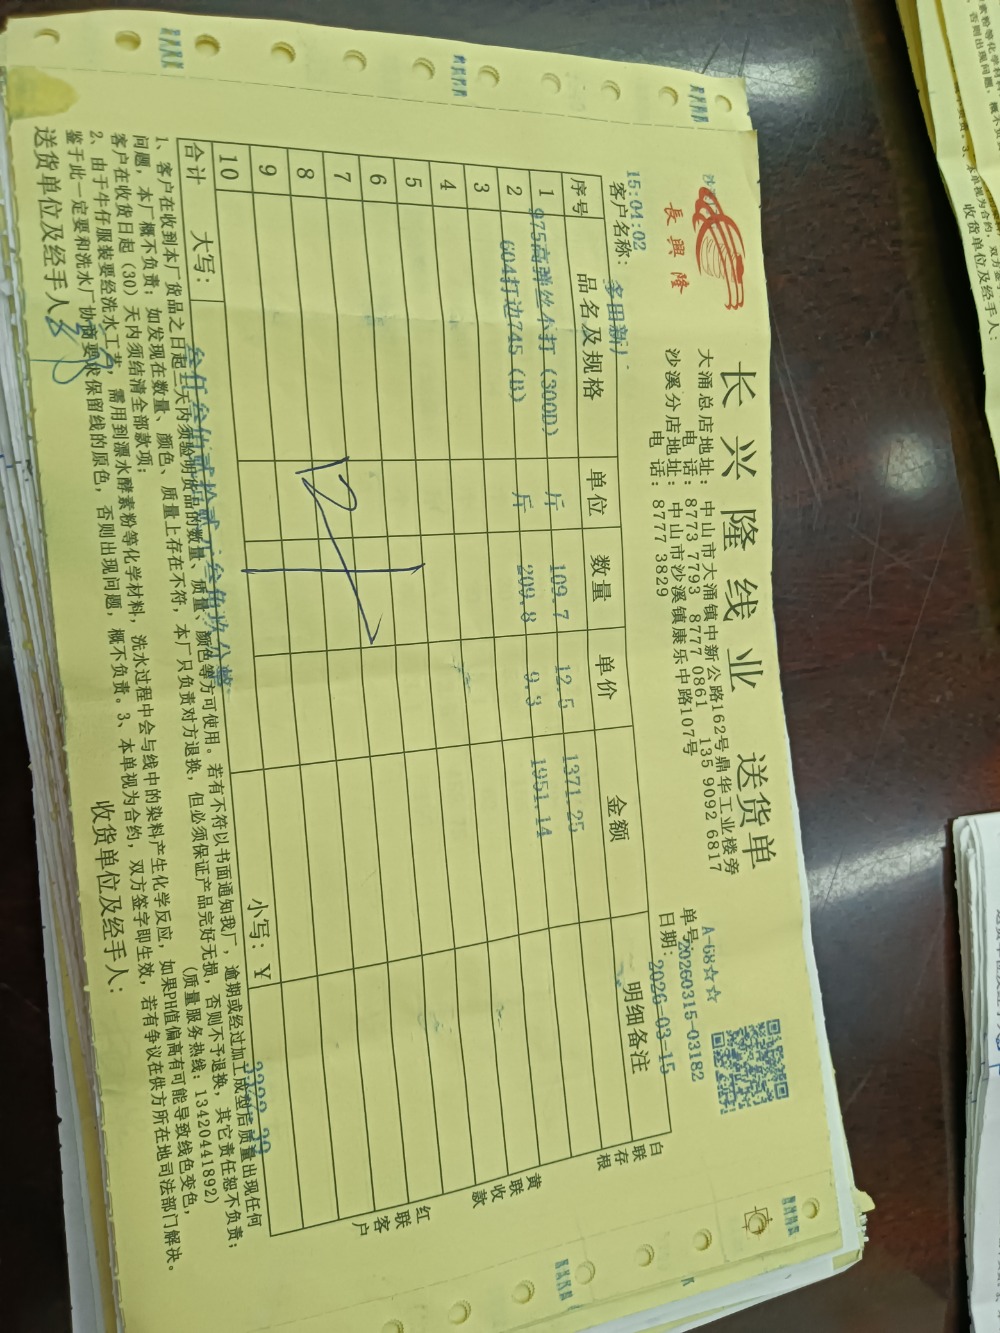 長興隆
长兴隆线业 送货单
大涌总店地址：中山市大涌镇中新公路162号鼎华工业楼旁
电话：8773 7793 8777 0861 135 9092 6817
沙溪分店地址：中山市沙溪镇康乐中路107号
电话：8777 3829
A-68☆☆
单号：20260315-03182
日期：2026-03-15
15:04:02
客户名称：多田新
序号 品名及规格 单位 数量 单价 金额 明细备注
1 975高弹丝不打（300D） 斤 109.7 12.5 1371.25
2 604打边745（B） 斤 209.8 9.3 1951.14
3
4
5
6
7
8
9
10
合计 大写：叁仟叁佰贰拾贰元叁角玖分整 小写：Y 3322.39
白联存根
黄联收款
红联客户
1、客户在收到本厂货品之日起三天内须验明货品的数量、质量、颜色等方可使用。若有不符以书面通知我厂，逾期或经过加工成型后质量出现任何
问题，本厂概不负责；如发现在数量、颜色、质量上存在不符，本厂只负责对方退换，但必须保证产品完好无损，否则不予退换，其它责任恕不负责；
客户在收货日起（30）天内须结清全部款项； （质量服务热线：13420441892）
2、由于牛仔服装要经洗水工艺，需用到漂水酵素粉等化学材料，洗水过程中会与线中的染料产生化学反应，如果PH值偏高有可能导致线色变色，
鉴于此一定要和洗水厂协商要求保留线的原色，否则出现问题，概不负责。3、本单视为合约，双方签字即生效，若有争议在供方所在地司法部门解决。
送货单位及经手人： 收货单位及经手人：
收货单位及经手人：